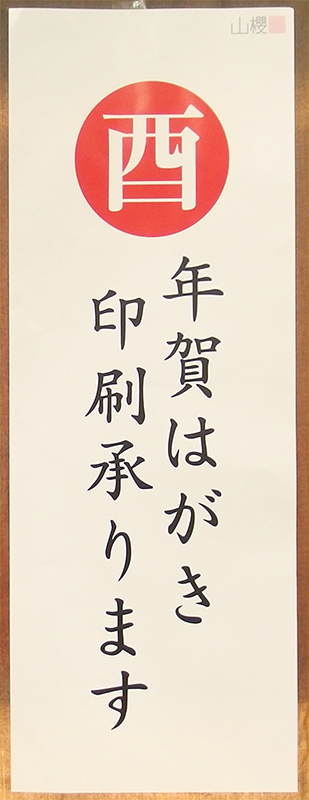 山櫻
酉
年賀はがき
印刷承ります